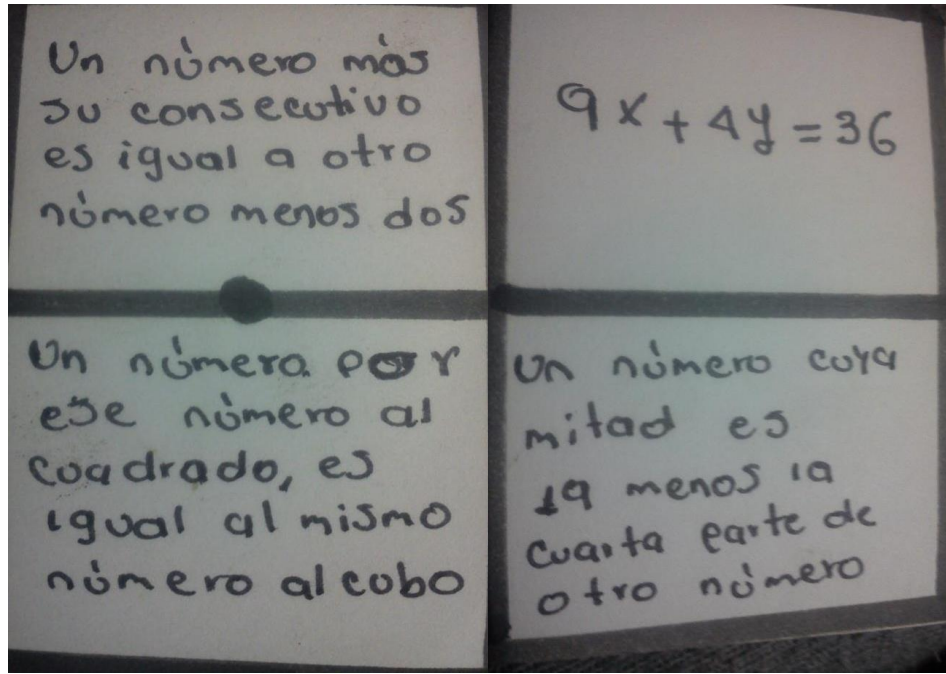 Un número más
su consecutivo
es igual a otro
número menos dos
9x + 4y = 36
Un número por
ese número al
cuadrado, es
igual al mismo
número al cubo
Un número cuya
mitad es
19 menos la
cuarta parte de
otro número